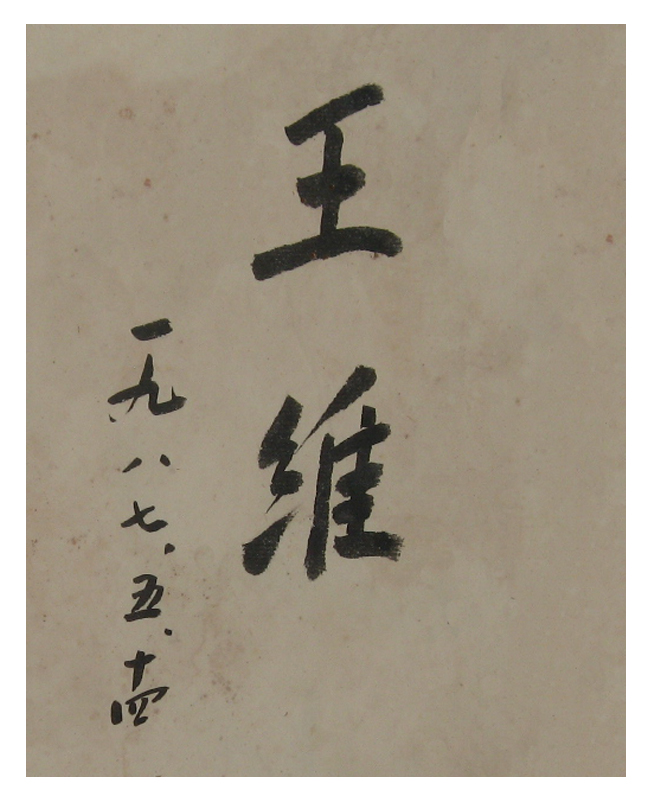 王维
一九八七、五、十四